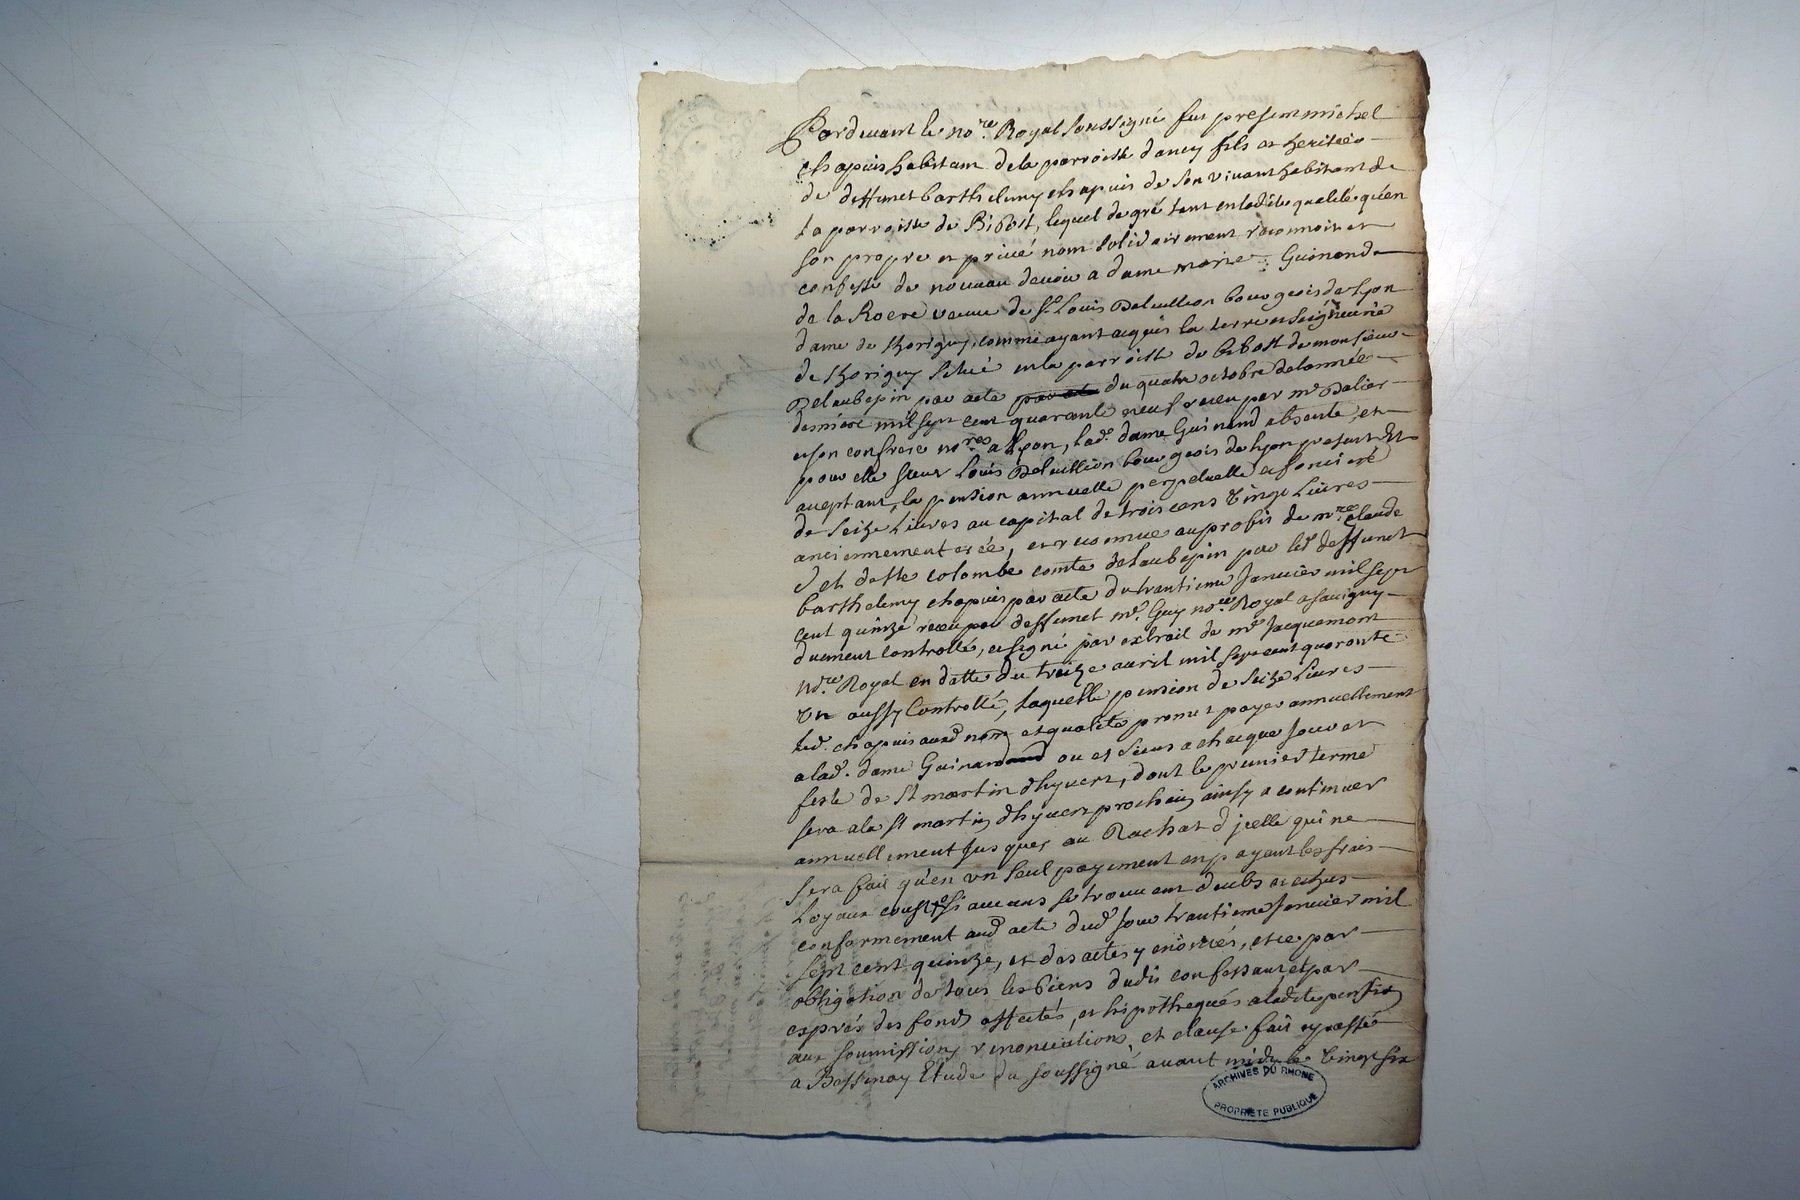 Pardevant le no.re Royal soussigné fut present michel
chapuis habitant de la parroisse d'ancy fils et heritier
de deffunct barthelemy chapuis de son vivant habitant de
la parroisse de Bibost, lequel de gré tant en ladite qualité qu'en
son propre et privé nom solidairement reconnoit et
confesse de nouveau devoir a dame marie Guinand
de la Roere veuve de Sr. Louis Deluillion bourgeois de Lyon
dame de thorigny, comme ayant acquis la terre et seigneurie
de thorigny située en la parroisse de bibost de monsieur
Delaubepin par acte du quatre octobre de lannée
derniere mil sept cent quarante neuf receu par me Dalier
et son confrere no.res a Lyon, lad. dame Guinand absente, et
pour elle sieur Louis Deluillion bourgeois de Lyon present et
aceptant, la pension annuelle perpetuelle et fonciere
de seize Livres au capital de trois cens vingt Livres
anciennement creé, et reconnue au profit de m.re claude
de ste colombe comte de laubepin par led. deffunct
barthelemy chapuis par acte du trentieme Janvier mil sept
cent quinze receu par deffunct me. Guy no.re Royal a savigny
duement controllé, et signé par extrait de me Jacquemont
No.re Royal en datte du treize avril mil sept cent quarante
un aussy Controllé, laquelle pension de seize Livres
led. chapuis aud nom et qualité promet payer annuellement
a lad. dame Guinand ou es siens a chacque Jour et
feste de St martin dhyvert, dont le premier terme
sera a la St martin dhyvert prochain ainsy a continuer
annuellement Jusques au Rachat d'jcelle qui ne
sera fait qu'en un seul payement en payant les frais
Loyaux coust si aucuns se trouvent deubs et echus
conformement aud acte dud Jour trentieme Janvier mil
sept cent quinze, et des actes y enoncés, et ce par
obligation de tous les biens dudit confessant et par
exprés des fonds affectés, et hipothequés a ladite pension
aux soumissions renonciations, et clause fait et passé
a Bessenay Etude du soussigné avant midy le vingt six
ARCHIVES DU RHONE
PROPRIETE PUBLIQUE